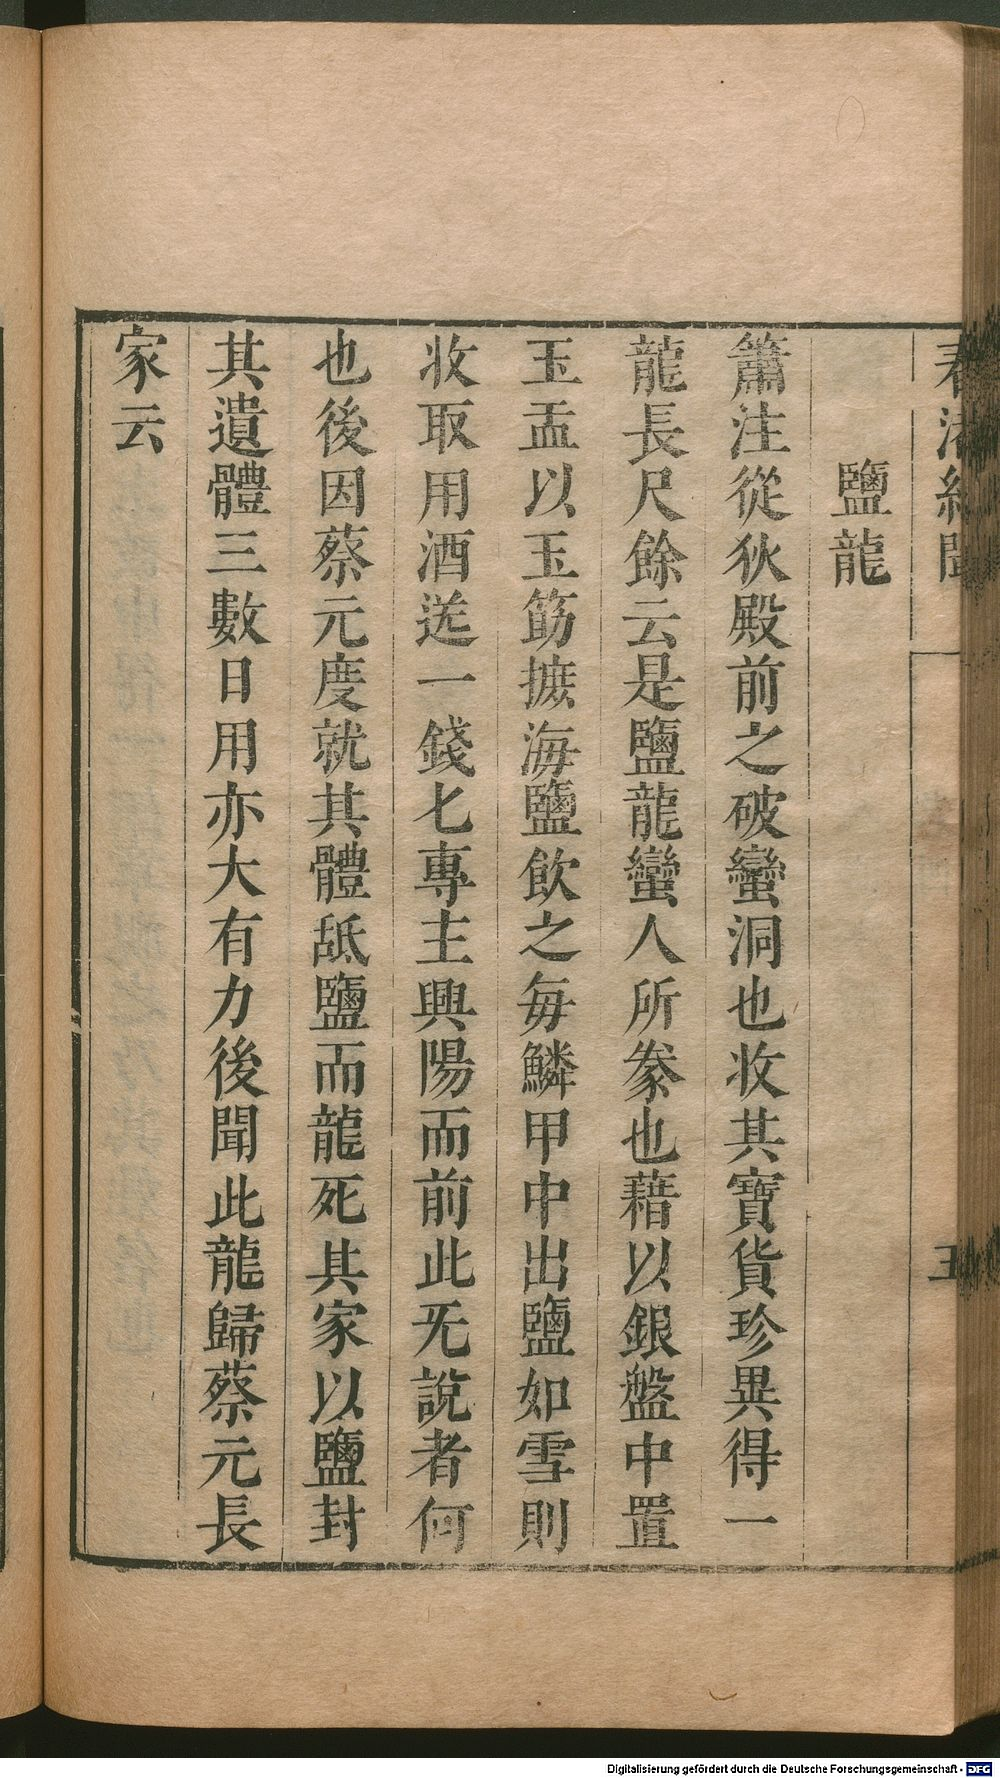 春渚紀聞
鹽龍
蕭注從狄殿前之破蠻洞也收其寶貨珍異得一
龍長尺餘云是鹽龍蠻人所豢也藉以銀盤中置
玉盂以玉筯摭海鹽飲之每鱗甲中出鹽如雪則
收取用酒送一錢匕專主興陽而前此旡說者何
也後因蔡元度就其體舐鹽而龍死其家以鹽封
其遺體三數日用亦大有力後聞此龍歸蔡元長
家云
Digitalisierung gefördert durch die Deutsche Forschungsgemeinschaft - DFG